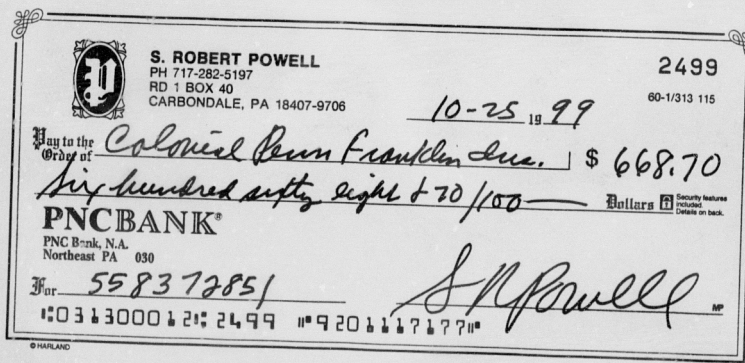 S. ROBERT POWELL
PH 717-282-5197
RD 1 BOX 40
CARBONDALE, PA 18407-9706
2499
60-1/313 115
10-25 19 99
Pay to the Order of Colonial Penn Franklin Ins. $ 668.70
Six hundred sixty eight & 70/100 Dollars
Security features included. Details on back.
PNCBANK®
PNC Bank, N.A.
Northeast PA 030
For 558372851
S R Powell
MP
⑆031300012⑆ 2499 ⑈9201117177⑈
© HARLAND